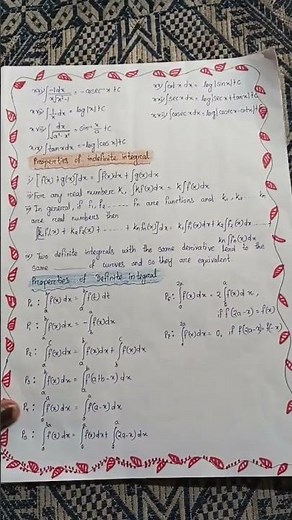 xvi) ∫-1dx/x√x²-1 = -cosec⁻¹x+c
xvii) ∫1/x dx = log|x|+c
xviii) ∫dx/√a²-x² = sin⁻¹ x/a +c
xix) ∫tan x dx = -log|cos x|+c
xx) ∫cot x dx = log|sin x|+c
∫sec x dx = log|sec x + tan x|+c
∫cosec x dx = log|cosec x - cot x|+c
Properties of indefinite integral
i) ∫[f(x)+g(x)]dx = ∫f(x)dx + ∫g(x)dx
ii) For any real number k, ∫kf(x)dx = k∫f(x)dx
In general, if f₁, f₂, ...... fn are functions and k₁, k₂, ... kn
are real numbers then
∫[k₁f₁(x) + k₂f₂(x) + .... + knfn(x)]dx = k₁∫f₁(x)dx + k₂∫f₂(x)dx ....
kn∫fn(x)dx
iv) Two definite integrals with the same derivative lead to the
same of curves and so they are equivalent
Properties of Definite Integral
P₀: ∫f(x)dx = ∫f(t)dt
P₁: ∫f(x)dx = -∫f(x)dx
P₂: ∫f(x)dx = ∫f(x)dx + ∫f(x)dx
P₃: ∫f(x)dx = ∫f(a+b-x)dx
P₄: ∫f(x)dx = ∫f(a-x)dx
P₅: ∫f(x)dx = ∫f(x)dx + ∫(2a-x)dx
P₆: ∫f(x)dx = 2∫f(x)dx,
if f(2a-x) = f(x)
P₇: ∫f(x)dx = 0, if f(2a-x) = f(-x)